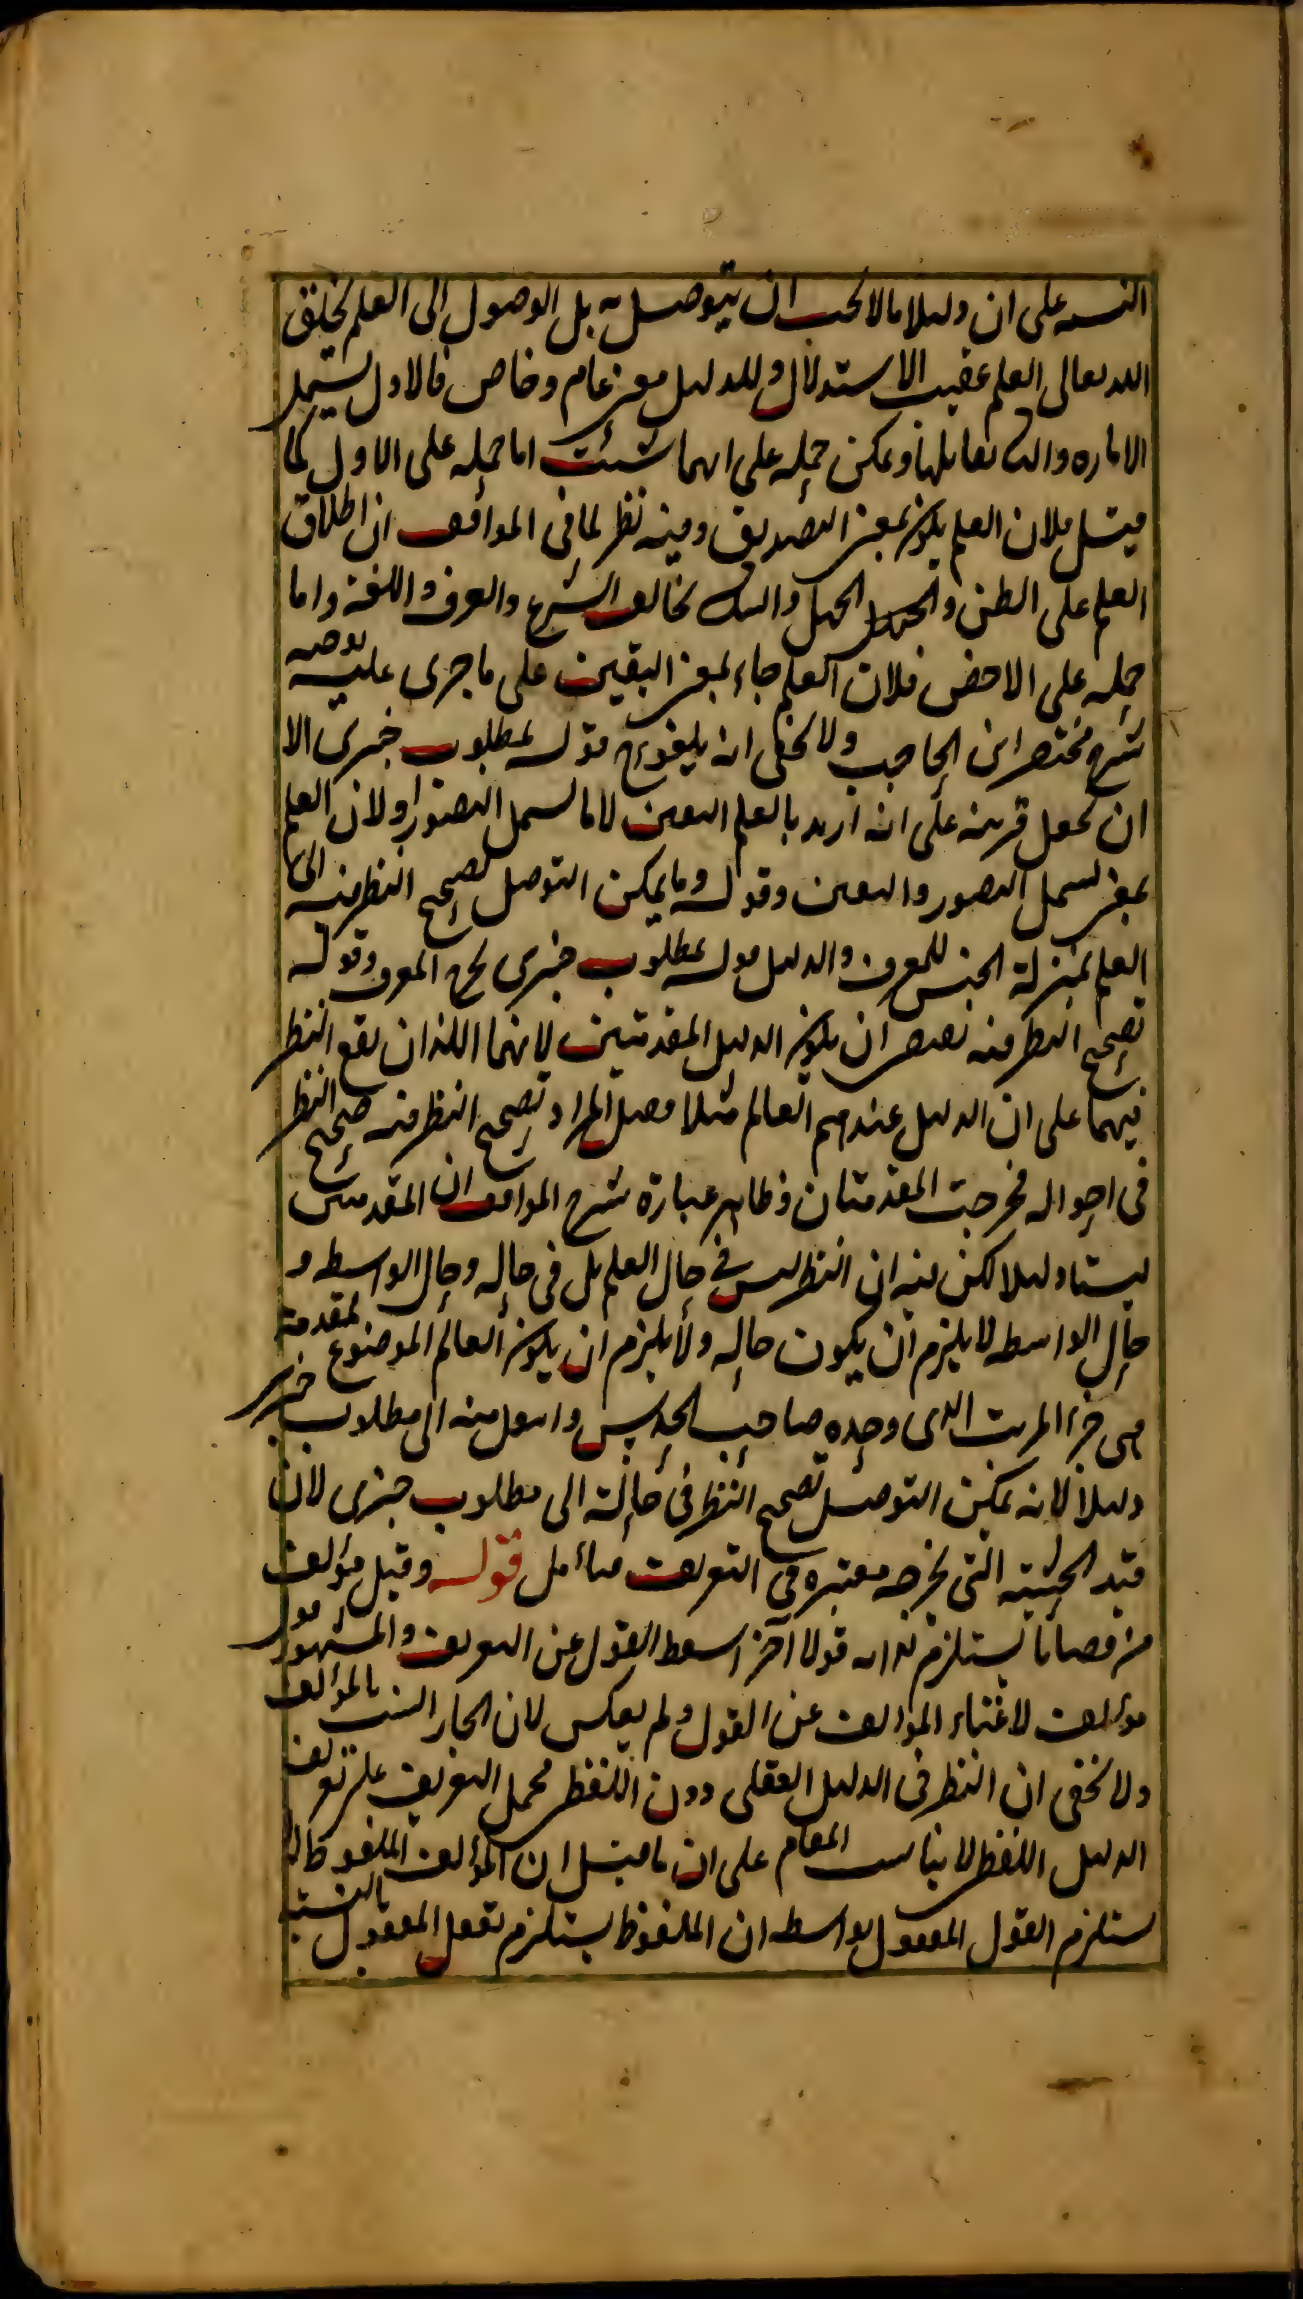 التنبيه على ان دليلا ما لا يجب ان يتوصل به بل الوصول الى العلم بخلق
الله تعالى العلم عقيب الاستدلال وللدليل معنى عام وخاص فالاول يشتمل
الاماره والثانى يقابلها ويمكن حمله على ايهما شئت اما حمله على الاول كما
قيل فلان العلم يكون بمعنى التصديق وفيه نظر لما فى المواقف ان اطلاق
العلم على الظن والجهل والشك يخالف الشرع والعرف واللغة واما
حمله على الاخص فلان العلم جاء بمعنى اليقين على ما جرى عليه
شرح مختصر ابن الحاجب ولا يخفى انه يلغو ح قوله بمطلوب خبرى الا
ان يجعل قرينه على انه اريد بالعلم اليقين لا ما يشمل التصور ولان العلم
بمعنى يشمل التصور واليقين وقوله وما يمكن التوصل بصحيح النظر فيه الى
العلم بمنزلة الجنس للمعرف والدليل قوله بمطلوب خبرى يخرج المعرف وقوله
بصحيح النظر فيه يقتضى ان يكون الدليل المقدمتين لانهما اللذان يقع النظر
فيهما على ان الدليل عندهم العالم مثلا فقيل المراد بصحيح النظر فيه صحيح النظر
فى احواله فخرجت المقدمتان وظاهر عبارة شرح المواقف ان المقدمتين
ليستا دليلا لكن فيه ان النظر ليس فى حال العلم بل فى حاله وحال الواسطه و
حال الواسطه لا يلزم ان يكون حاله ولا يلزم ان يكون العالم الموضوع لمقدمة
هى جزء المرتب الذى وجده صاحب الحدس وانتقل منه الى مطلوب خبرى
دليلا لانه يمكن التوصل بصحيح النظر فى حاله الى مطلوب خبرى لان
قيد الحيثية التى يخرجه معتبره فى التعريف فتأمل قوله وقيل مؤلف
من قضايا يستلزم لذاته قولا آخر اسقط القول عن التعريف والمشهور قول
مؤلف لاغناء المؤلف عن القول ولم يعكس لان الجار انسب بالمؤلف
ولا يخفى ان النظر فى الدليل العقلى دون اللفظى فحمل التعريف على تعريف
الدليل اللفظى لا يناسب المقام على ان ما قيل ان المؤلف الملفوظ
يستلزم القول المعقول بواسطه ان الملفوظ يستلزم تعقل المعقول بالنسبة